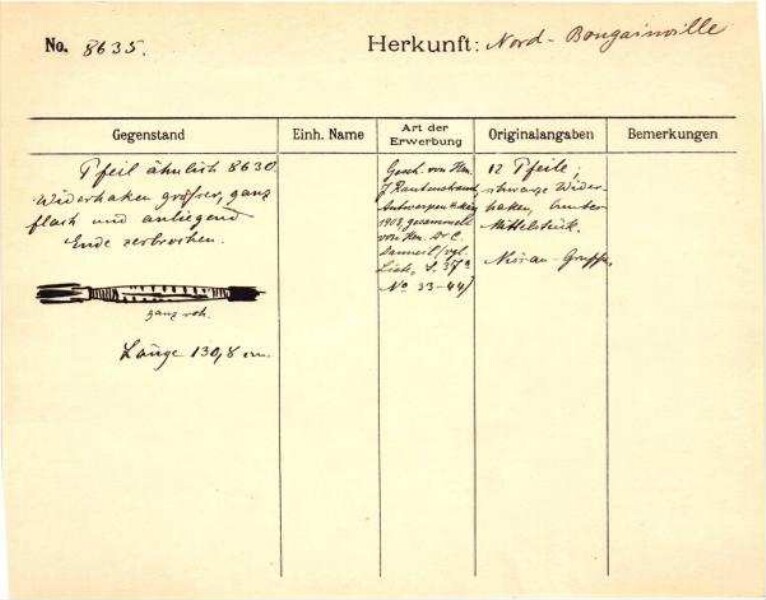 No. 8635.
Herkunft: Nord-Bougainville
Gegenstand
Einh. Name
Art der Erwerbung
Originalangaben
Bemerkungen
Pfeil ähnlich 8630
Widerhaken grösser, ganz
flach und anliegend
Ende zerbrochen.
ganz roh.
Länge 130,8 cm.
Gesch. von Hrn.
J Rautenstrauch
Antwerpen
1903, gesammelt
von Hrn. Dr C.
Danneil/vgl.
Liste, S. 37
No 33-44)
12 Pfeile;
schwarze Wider-
haken, bunter
Mittelstück.
Nissan-Gruppe.